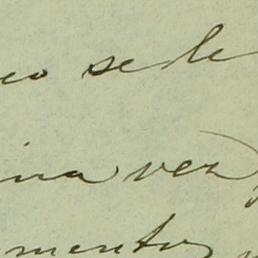 eo se le
ina vez
mento